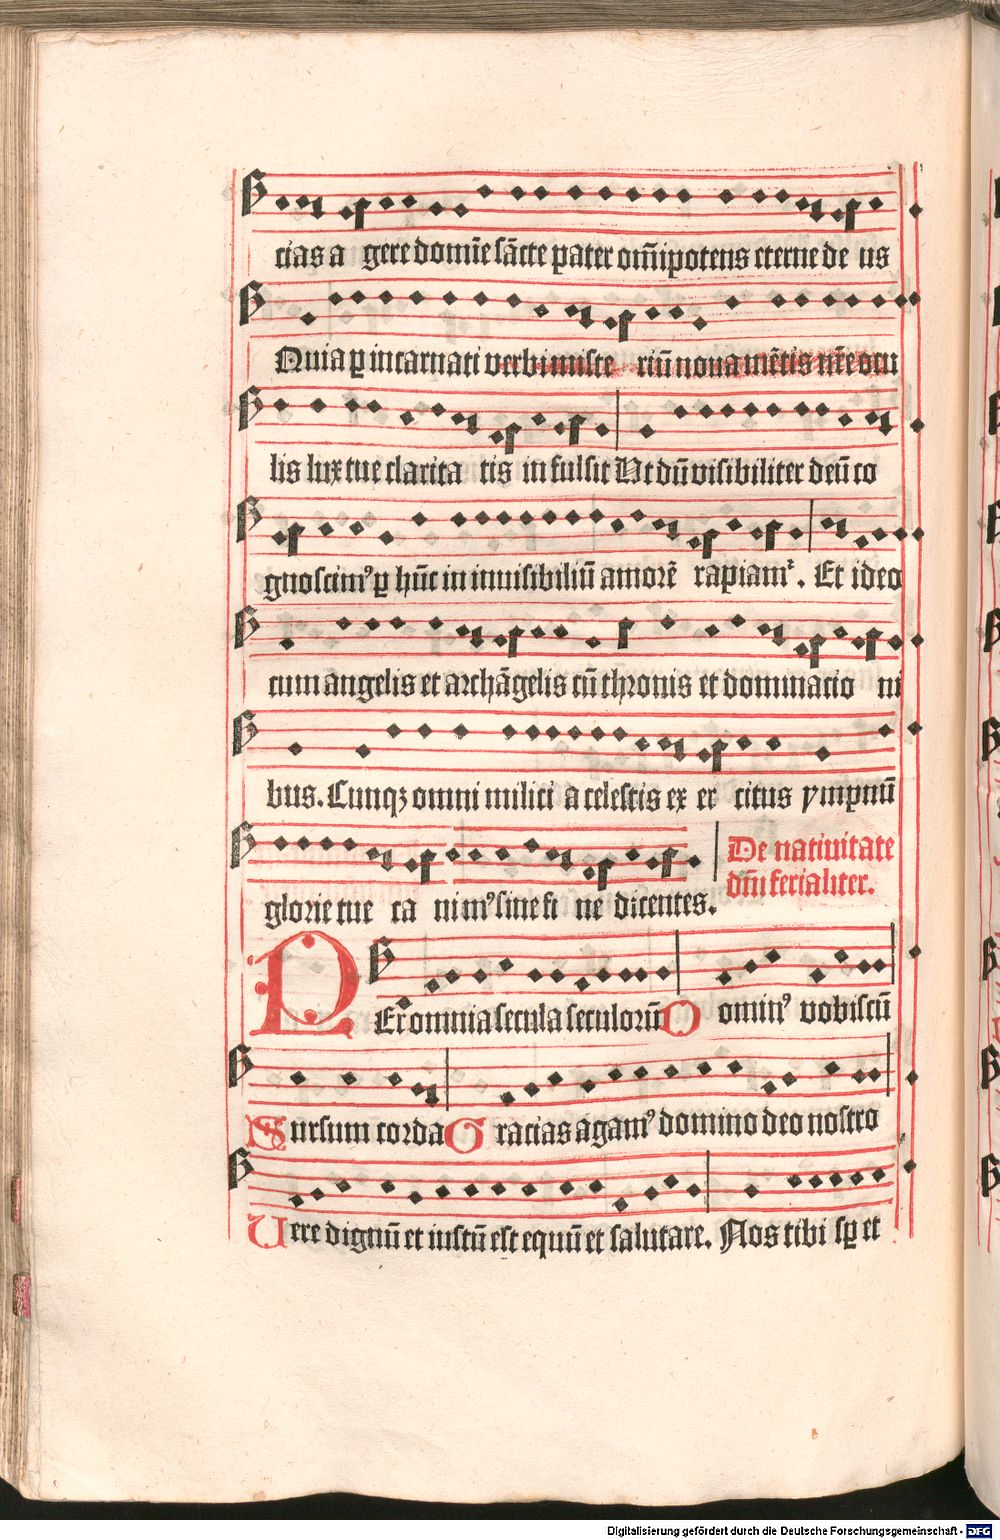 cias a gere domīe sācte pater om̄ipotens eterne de us
Quia ꝑ incarnati verbi miste riū noua mētis nr̄e ocu
lis lux tue clarita tis in fulsit Ut dū visibiliter deū co
gnoscimꝰ ꝑ hūc in inuisibiliū amorē rapiamᷣ. Et ideo
cum angelis et archāgelis cū thronis et dominacio ni
bus. Cunqꝫ omni milici a celestis ex er citus ympnū
glorie tue ca nimꝰ sine fi ne dicentes.
De natiuitate
dn̄i ferialiter.
PEr omnia secula seculorū Dominꝰ vobiscū
Sursum corda Gracias agamꝰ domino deo nostro
Uere dignū et iustū est equū et salutare. Nos tibi sꝑ et
Digitalisierung gefördert durch die Deutsche Forschungsgemeinschaft - DFG